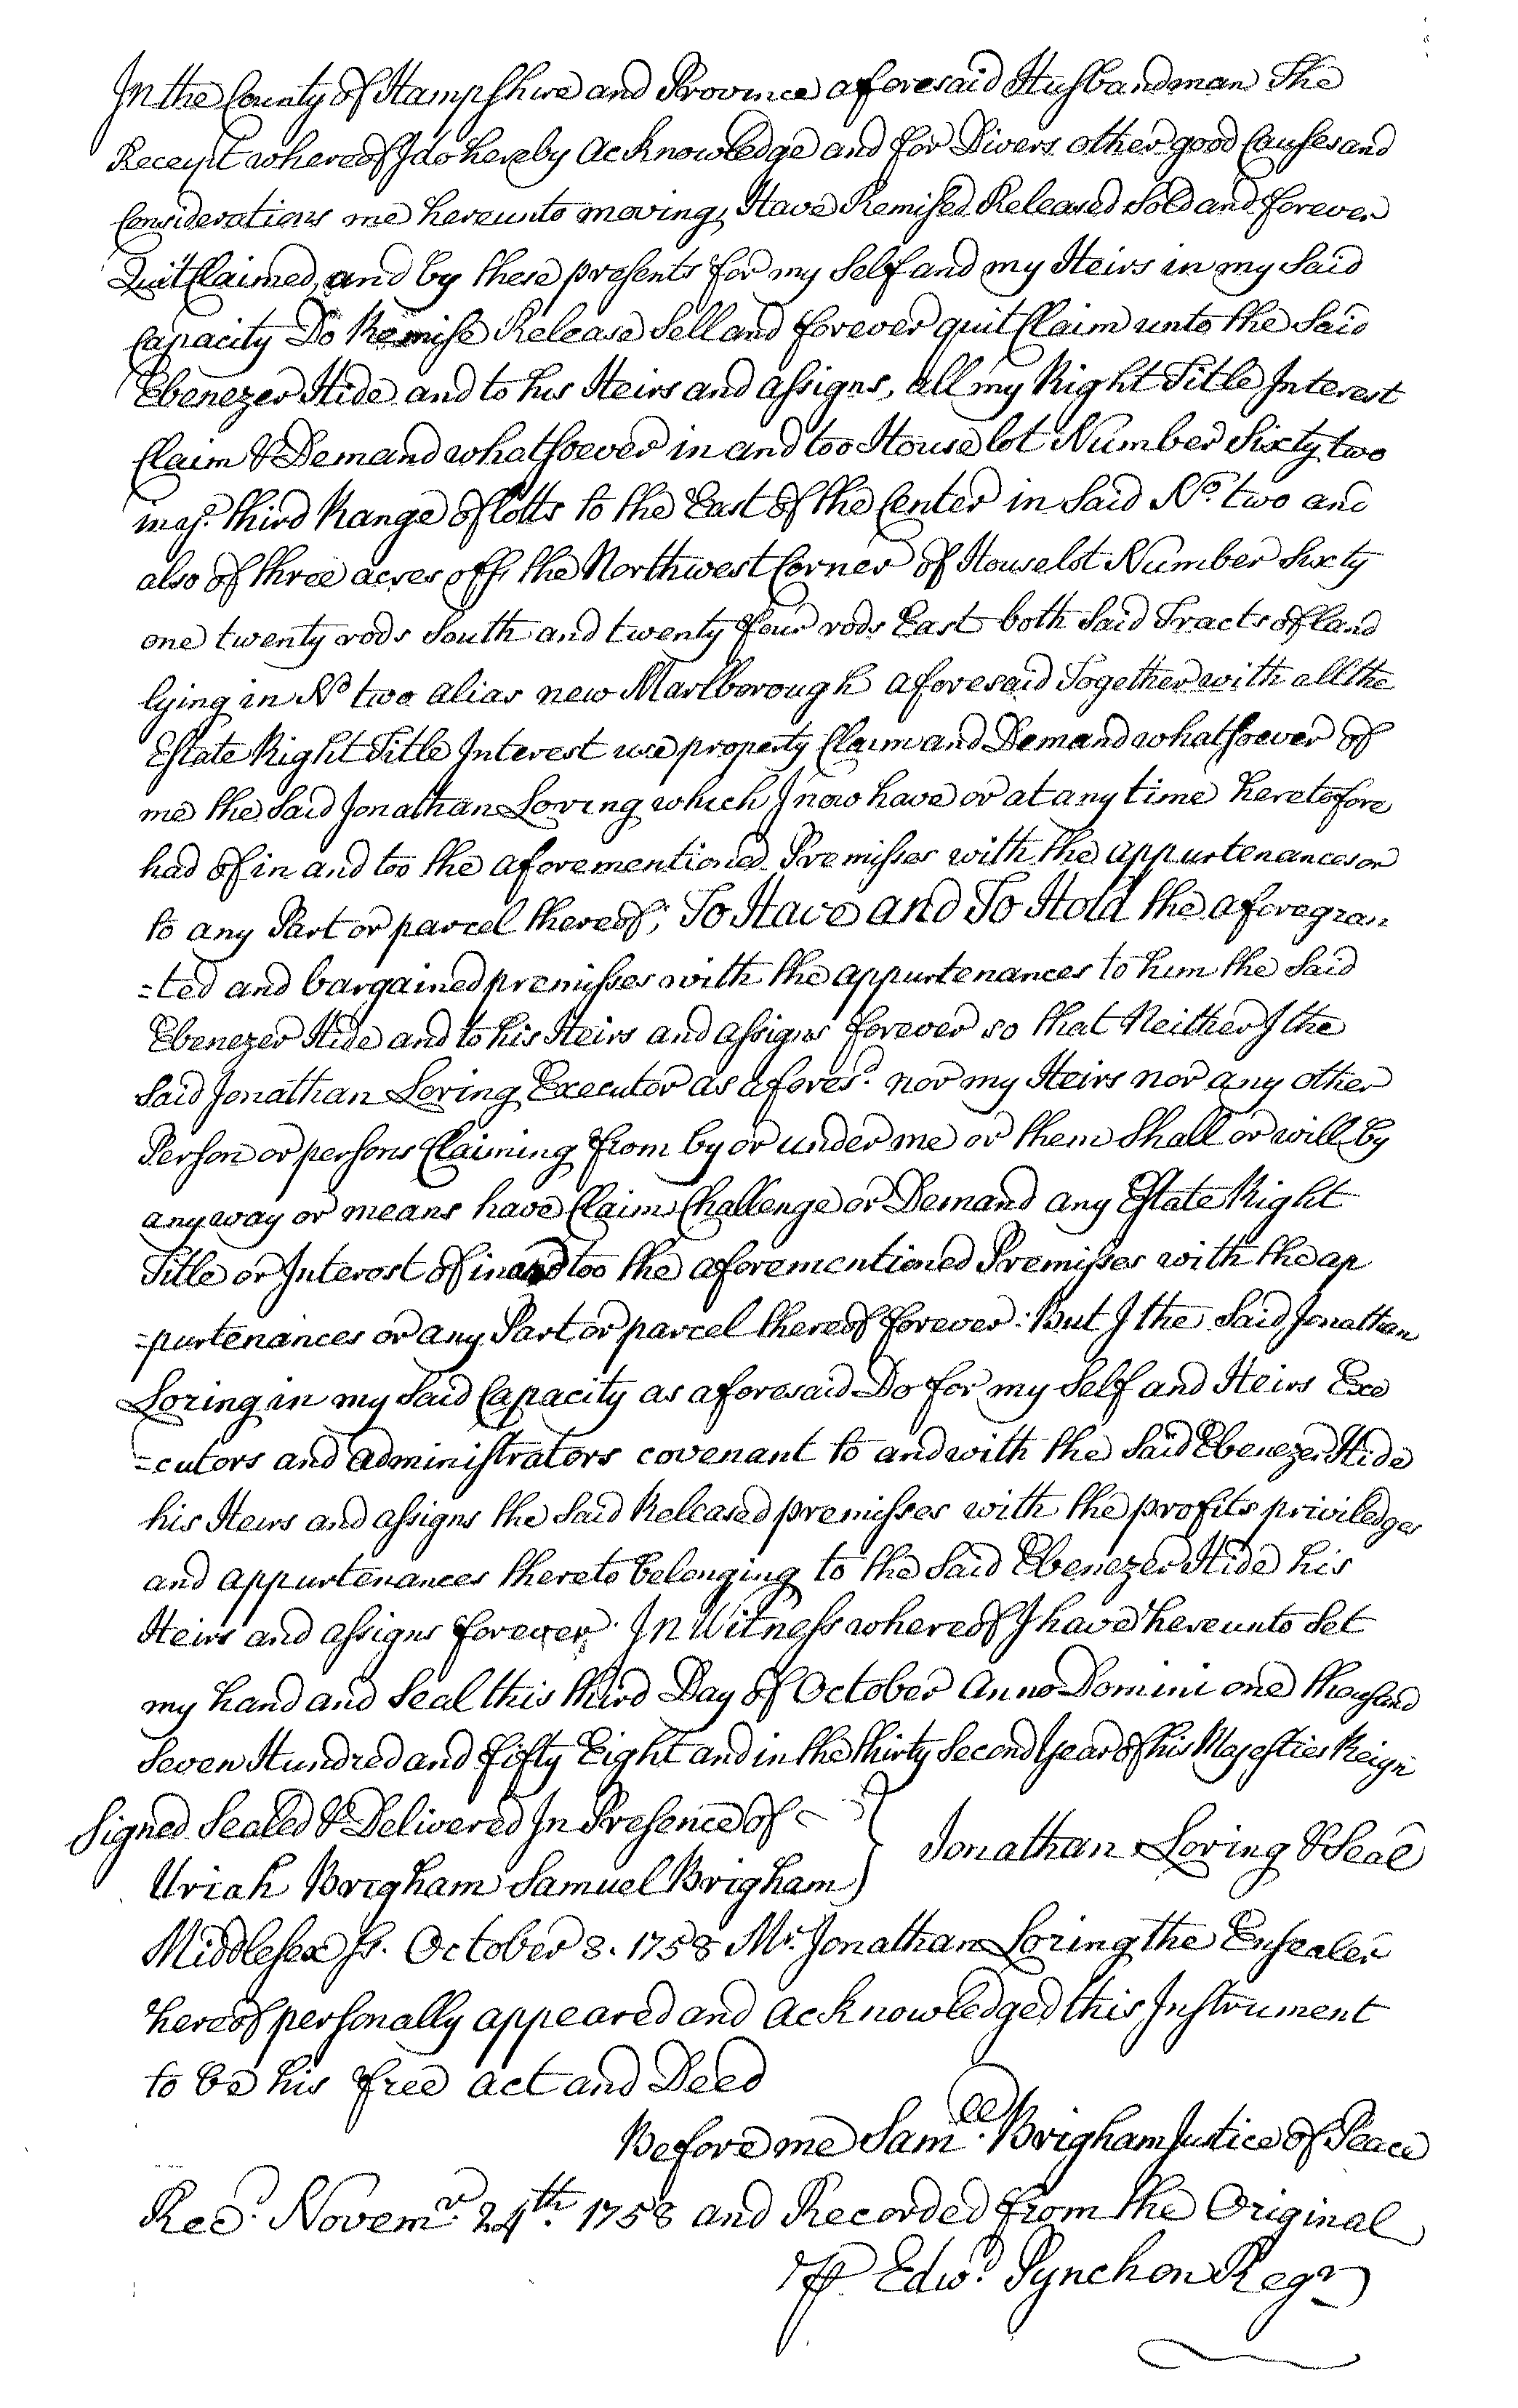 In the County of Hampshire and Province aforesaid Husbandman The
Receipt whereof I do hereby acknowledge and for Divers other good Causes and
Considerations me hereunto moving, Have Remised Released Sold and forever
Quit Claimed, and by these presents for my Self and my Heirs in my Said
Capacity Do Remise Release Sell and forever quit Claim unto the Said
Ebenezer Hide and to his Heirs and assigns, all my Right Title Interest
Claim & Demand whatsoever in and too House lot Number Sixty two
third Range of lotts to the East of the Center in Said No. two and
also of three acres off the Northwest Corner of House lot Number Sixty
one twenty rods South and twenty four rods East both Said Tracts of land
lying in No two alias new Marlborough aforesaid Together with all the
Estate Right Title Interest use property Claim and Demand whatsoever of
me the Said Jonathan Loring which I now have or at any time heretofore
had of in and too the aforementioned Premisses with the appurtenances or
to any Part or parcel thereof; To Have and To Hold the aforegran
=ted and bargained premisses with the appurtenances to him the Said
Ebenezer Hide and to his Heirs and assigns forever so that Neither I the
Said Jonathan Loring Executor as afores.d nor my Heirs nor any other
Person or persons Claiming from by or under me or them Shall or will by
any way or means have Claim Challenge or Demand any Estate Right
Title or Interest of in and too the aforementioned Premisses with the ap
=purtenances or any Part or parcel thereof forever: But I the Said Jonathan
Loring in my Said Capacity as aforesaid Do for my Self and Heirs Exe
=cutors and administrators covenant to and with the Said Ebenezer Hide
his Heirs and assigns the Said Released premisses with the profits priviledges
and appurtenances thereto belonging to the Said Ebenezer Hide his
Heirs and assigns forever. In Witness whereof I have hereunto Set
my hand and Seal this third Day of October Anno Domini one thousand
Seven Hundred and fifty Eight and in the thirty Second Year of his Majesties Reign
Signed Sealed & Delivered In Presence of
Uriah Brigham Samuel Brigham } Jonathan Loring & Seal
Middlesex ss. October 3. 1758 Mr. Jonathan Loring the Ensealer
hereof personally appeared and acknowledged this Instrument
to be his free act and Deed
Before me Sam.ll Brigham Justice of Peace
Rec.d Novem.r 24th. 1758 and Recorded from the Original
⅌ Edw.d Pynchon Regr